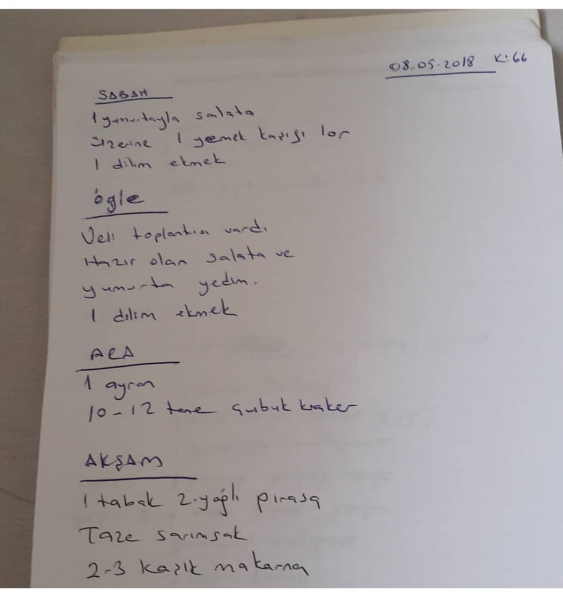 08.05.2018 K:66
SABAH
1 yumurtayla salata
üzerine 1 yemek kaşığı lor
1 dilim ekmek
öğle
Veli toplantısı vardı.
Hazır olan salata ve
yumurta yedim.
1 dilim ekmek
ARA
1 ayran
10-12 tane çubuk kraker
AKŞAM
1 tabak z.yağlı pırasa
Taze sarımsak
2-3 kaşık makarna